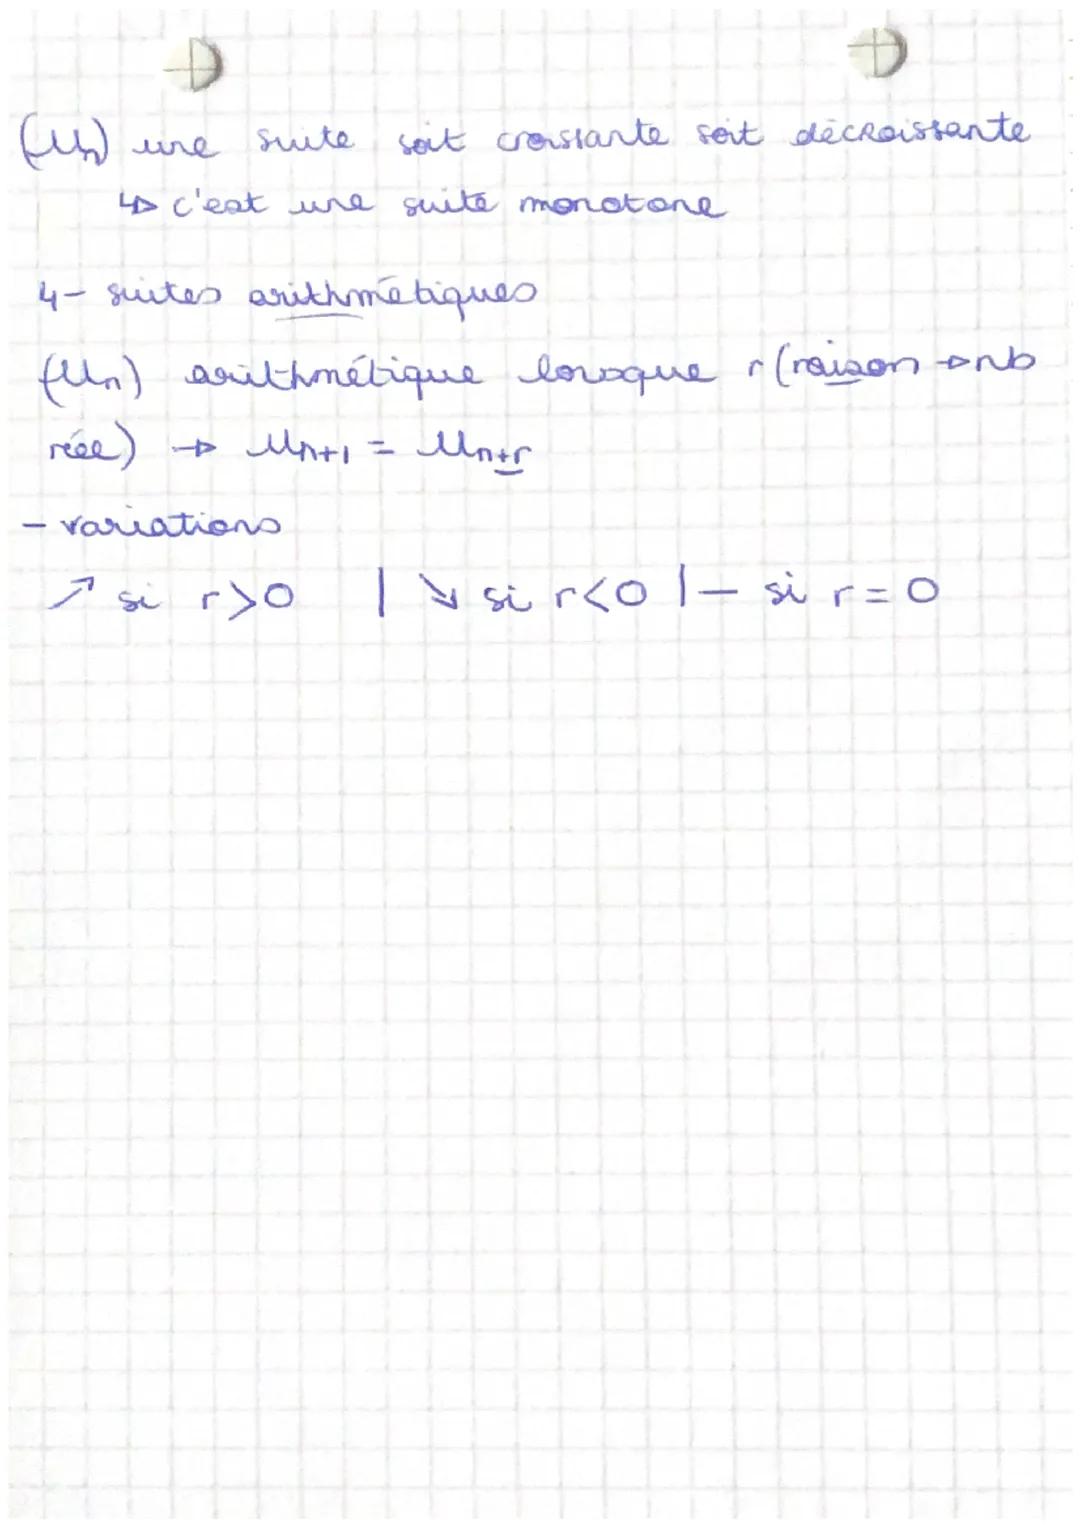 (Un) une suite soit croissante soit décroissante
↳ c'est une suite monotone
4- suites arithmétiques
(Un) arithmétique lorsque r (raison → nb
réel) → Un+1 = Un+r
- variations
↗ si r>0 | ↘ si r<0 | — si r=0